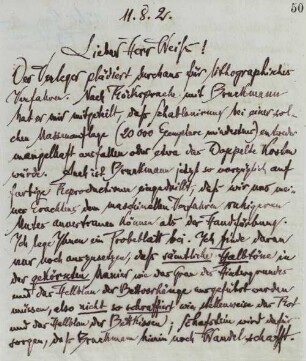 50
11. 8. 2.
Lieber Herr Weiß!
Der Verleger plädiert durchaus für lithographisches
Verfahren. Nach Rücksprache mit Bruckmann
hat er mir mitgeteilt, daß Schattierung bei einer sol-
chen Massenauflage (20 000 Exemplare mindestens) entweder
mangelhaft ausfallen oder etwa das Doppelte kosten
würde. Auch ist Bruckmann jetzt so vorzüglich auf
farbige Reproductionen eingedrillt, daß wir uns mei-
nes Erachtens dem maschinellen Verfahren ruhigeren
Mutes anvertrauen können als der Handfärbung.
Ich lege Ihnen ein Probeblatt bei. Ich finde daran
nur noch auszusetzen, daß sämtliche Halbtöne in
der gekörnten Manier wie das Grau des Hintergrundes
und das Hellblau der Bettvorhänge ausgeführt werden
müssen, also nicht so schraffiert wie stellenweise das Rot
und das Hellblau der Bettkissen; Schafstein wird dafür
sorgen, daß Bruckmann hierin noch Wandel schafft.